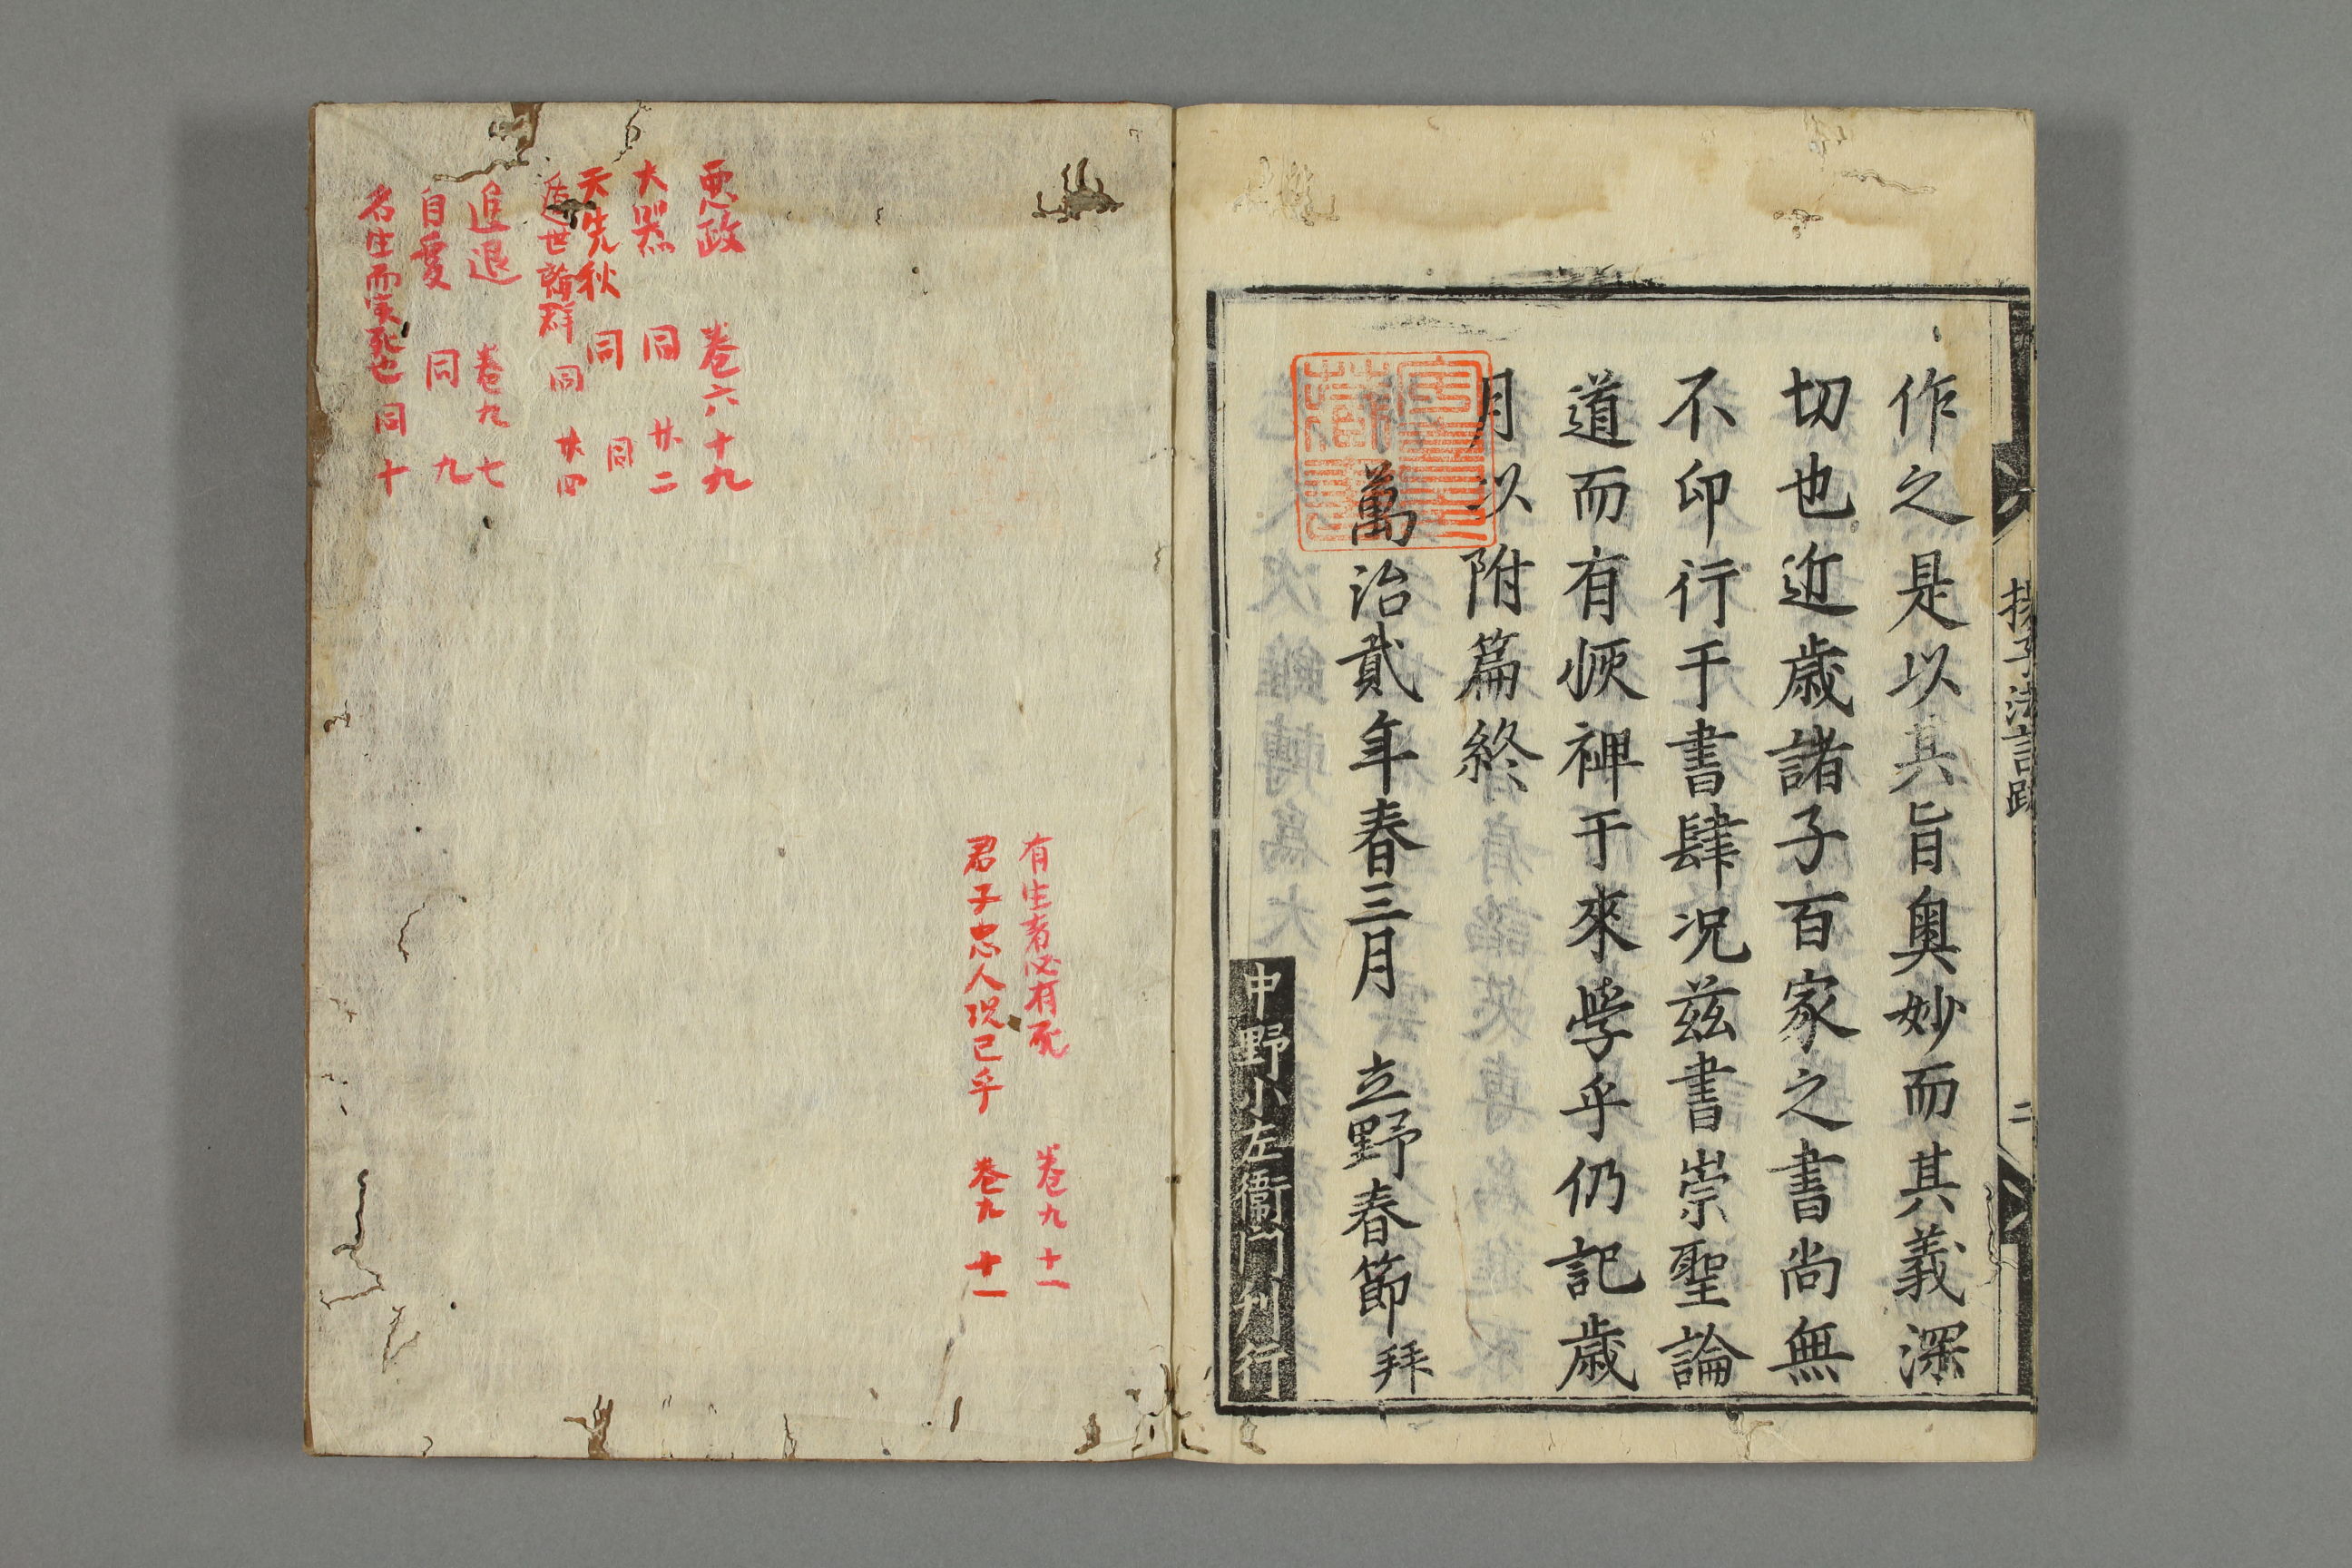 揚子法言跋
二
作之是以其旨奥妙而其義深
切也近歳諸子百家之書尚無
不印行于書肆况茲書崇聖論
道而有恢裨于來学乎仍記歳
月以附篇終
萬治貳年春三月 立野春節拜
中野小左衞門刋行
有生者必有死 卷九 十一
君子忠人况己乎 卷九 十一
惡政 卷六 十九
大器 同 廿二
天先秋 同 同
世 群 同 廿四
進退 卷九 七
自愛 同 九
名生而実死也 同 十